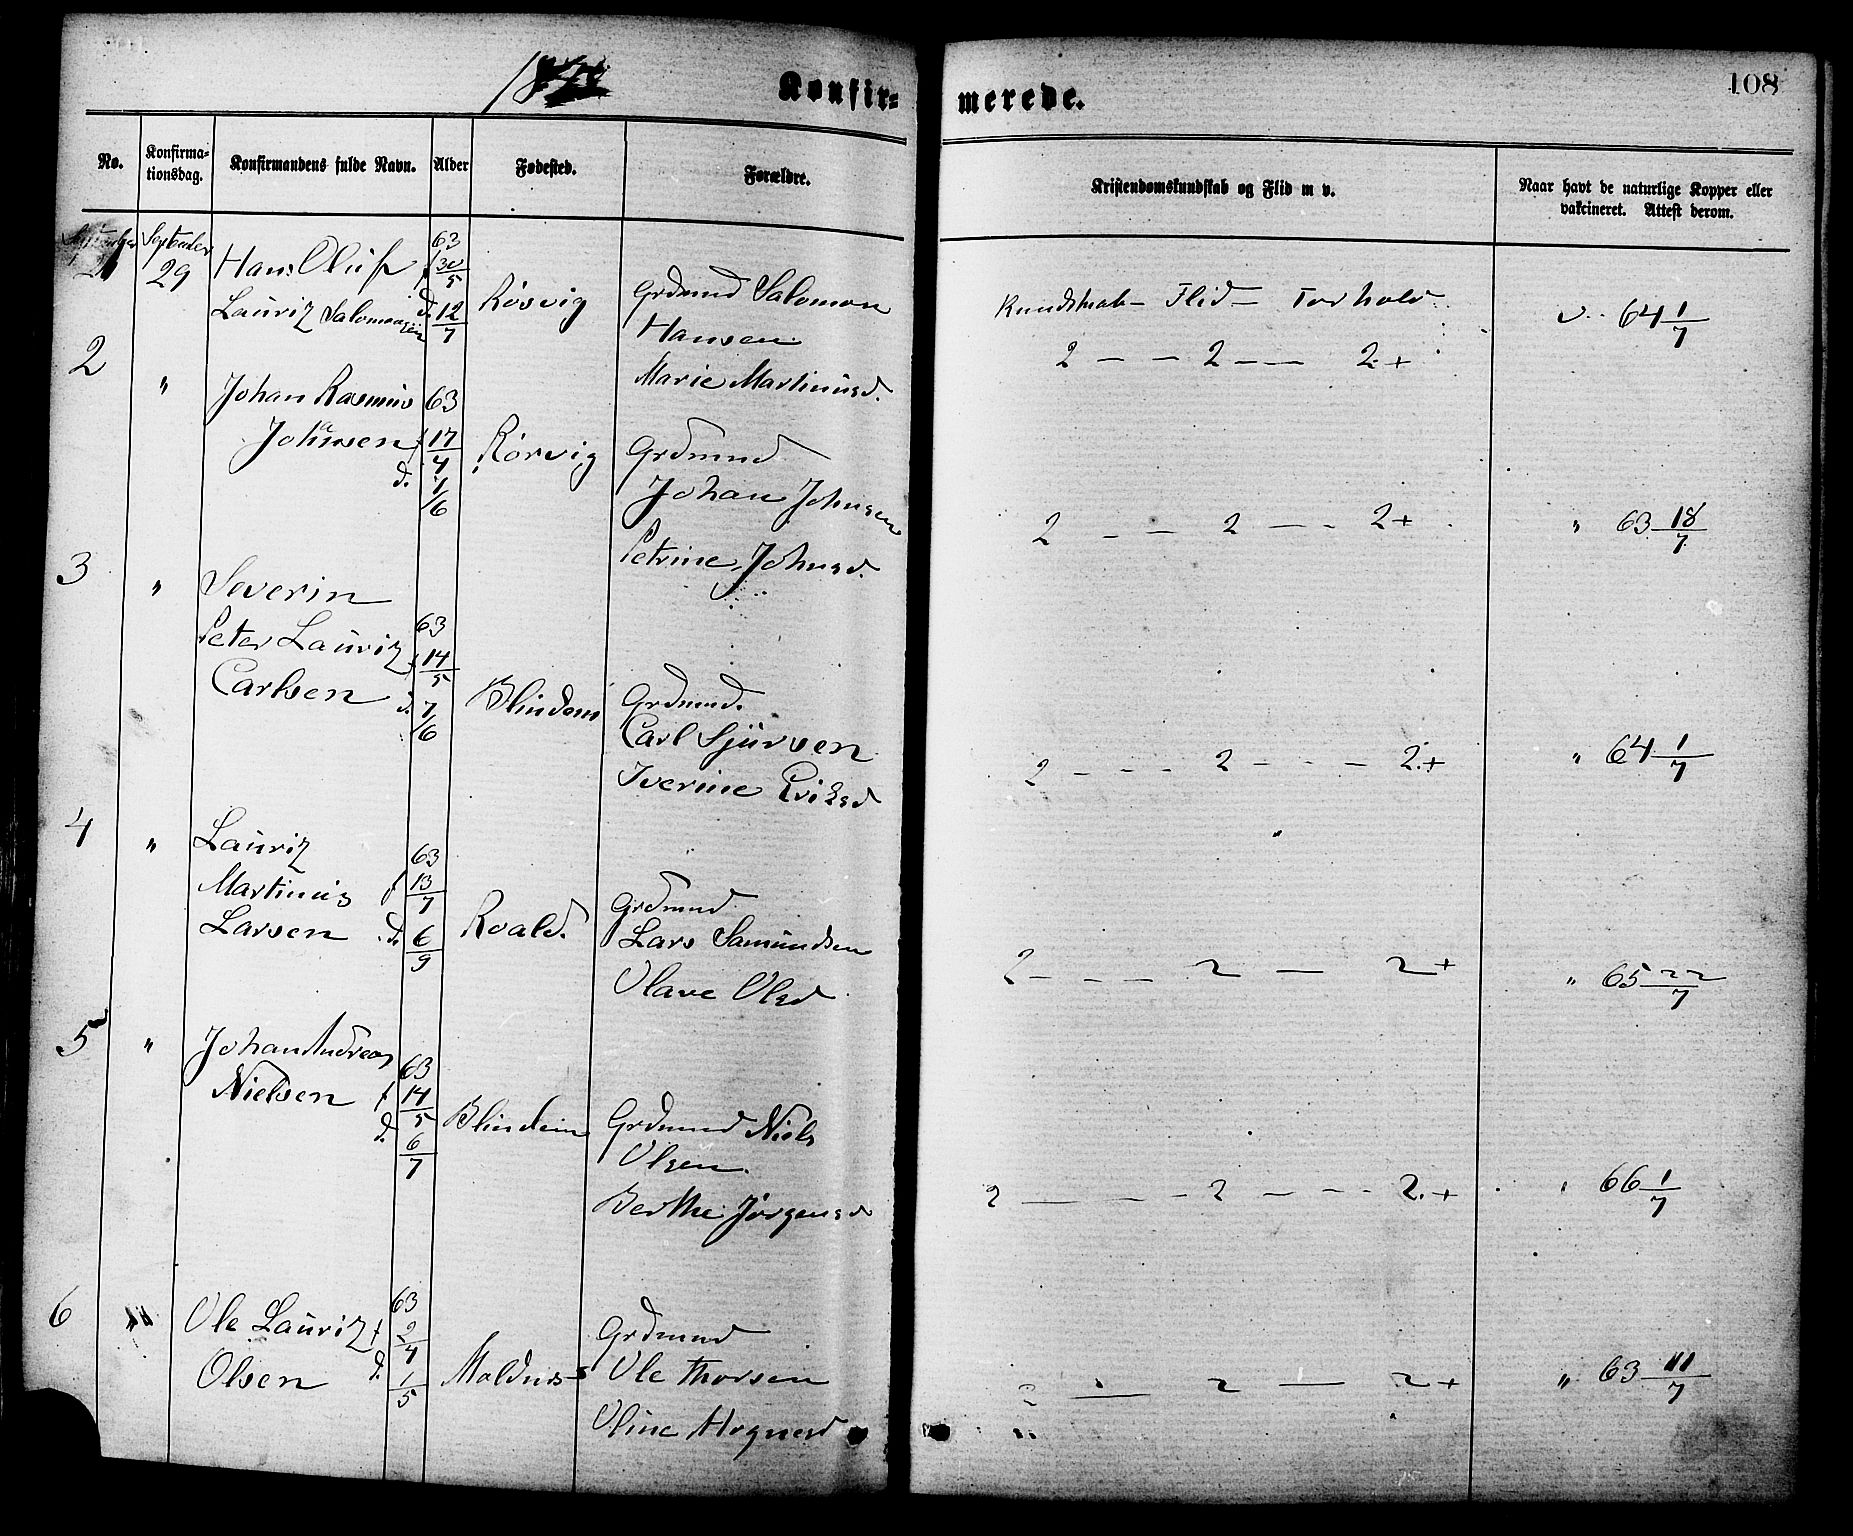 Konfir=
merede.
108
No.
Konfirma-
tionsdag.
Konfirmandens fulde Navn.
Alder
Fødested.
Forældre.
Kristendomskundskab og Flid m v.
Naar havt de naturlige Kopper eller
vakcineret. Attest derom.
1
September
29
Hans Oluf
Lauriz Salomonsen
63
f 30/5
d. 12/7
Røsvig
Grdmnd Salomon
Hansen
Marie Martinusd.
Kundskab - Flid - Forhold.
2 - - 2 - - 2 +
v. 64 1/7
2
"
Johan Rasmus
Johnsen
63
f 17/4
d. 7/6
Rørvig
Grdmnd
Johan Johnsen
Petrine Johnsd.
2 - - 2 - - 2 +
" 63 18/7
3
"
Severin
Peter Lauriz
Carlsen
63
f 14/5
d. 7/6
Blindem
Grdmnd.
Carl Sjursen
Iverine Eriksd
2 - - - 2 - - - 2 +
" 64 1/7
4
"
Lauriz
Martinus
Larsen
63
f 13/7
d. 6/9
Roald.
Grdmnd
Lars Samundsen
Olave Olsd
2 - - - 2 - 2 +
" 65 22/7
5
"
Johan Andreas
Nielsen
63
f 14/5
d. 6/7
Blindeim
Grdmnd Niels
Olsen
Berthe Jørgensd
2 - - - 2 - - - 2 +
" 66 1/7
6
"
Ole Lauriz
Olsen
63
f 2/4
d. 1/5
Moldnes
Grdmnd
Ole Thorsen
Oline Hognesd
2 - 2 - 2 +
" 63 11/7